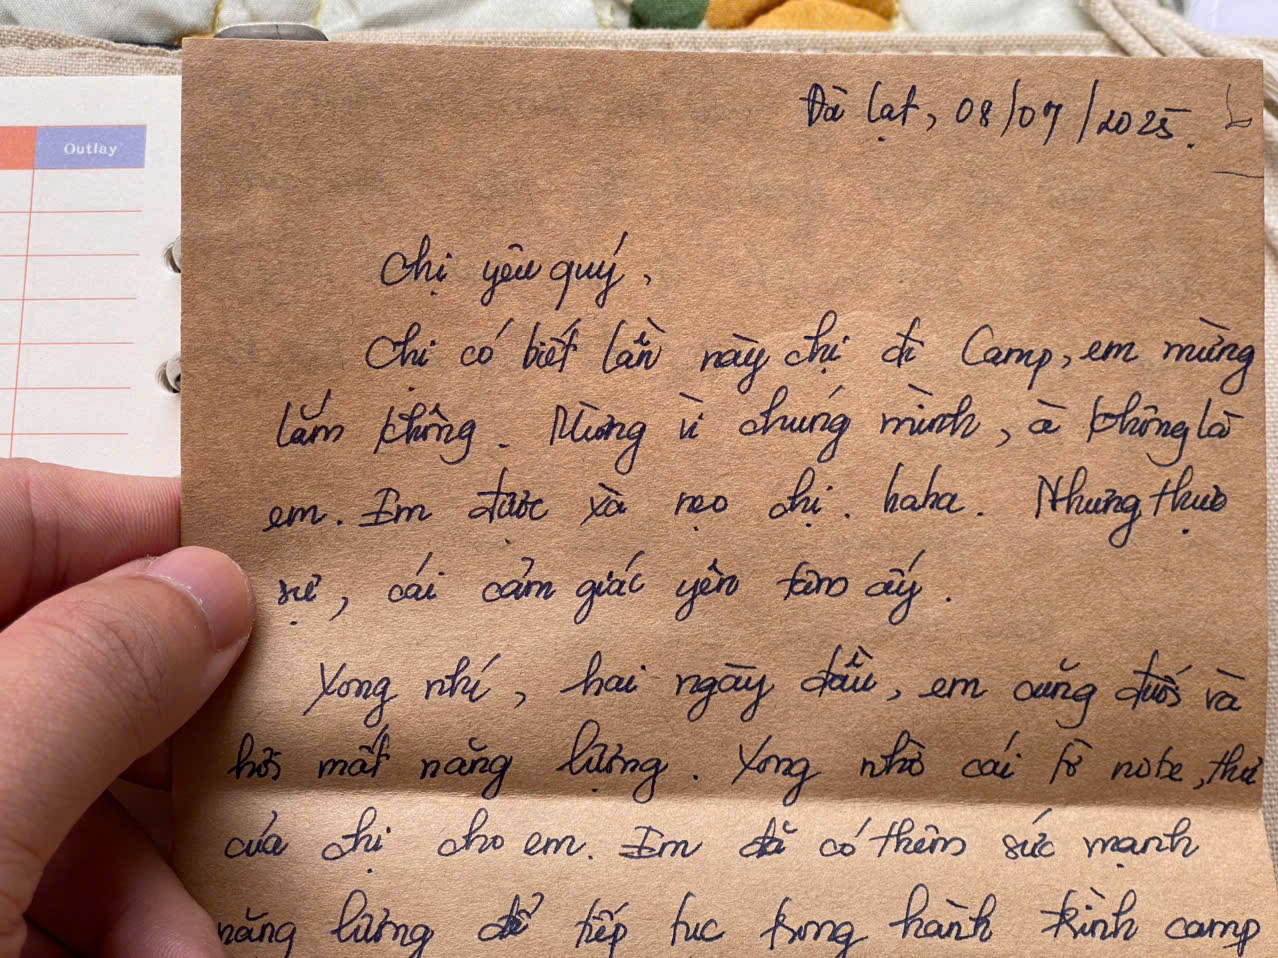 Outlay
Đà lạt, 08/07/2025.
Chị yêu quý,
Chị có biết lần này chị đi Camp, em mừng
lắm không. Mừng vì chúng mình, à không là
em. Em được xà nẹo chị. haha. Nhưng thực
sự, cái cảm giác yên tâm ấy.
Xong nhí, hai ngày đầu, em cũng đuối và
hơi mất năng lượng. Xong nhờ cái tờ note, thư
của chị cho em. Em đã có thêm sức mạnh
năng lượng để tiếp tục trong hành trình camp